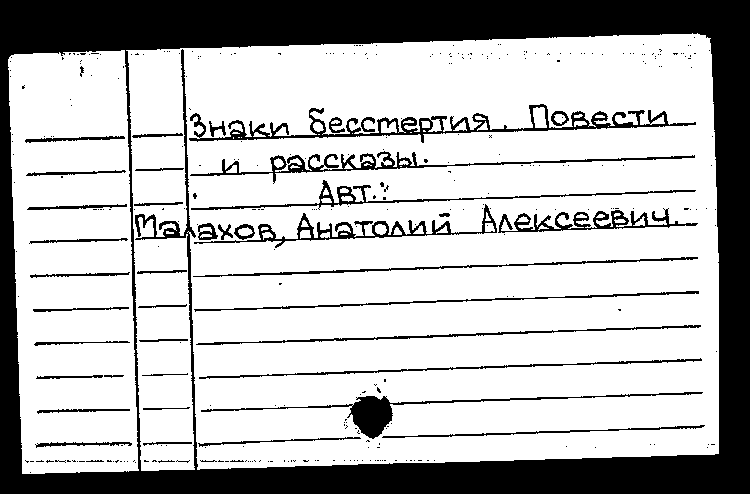 Знаки бессмертия. Повести
и рассказы.
Авт.:
Малахов, Анатолий Алексеевич.